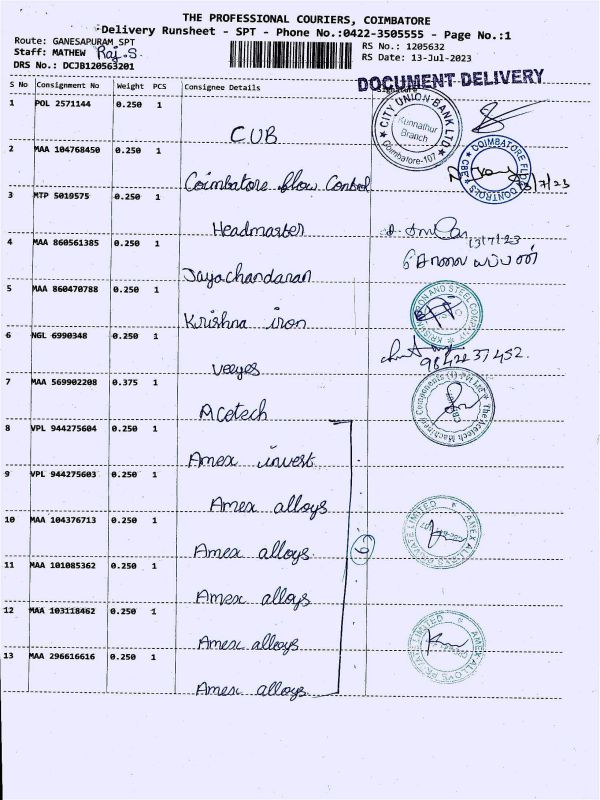 THE PROFESSIONAL COURIERS, COIMBATORE
Delivery Runsheet - SPT - Phone No.:0422-3505555 - Page No.:1
Route: GANESAPURAM_SPT
Staff: MATHEW Raj.S.
DRS No.: DCJB120563201
RS No.: 1205632
RS Date: 13-Jul-2023
DOCUMENT DELIVERY
S No Consignment No Weight PCS Consignee Details Signature
1 POL 2571144 0.250 1
CUB
CITY UNION BANK LTD
Kunnathur
Branch
Coimbatore-107
2 MAA 104768450 0.250 1
Coimbatore flow Control
COIMBATORE FLOW CONTROLS
CBE
13/7/23
3 MTP 5019575 0.250 1
Headmaster
13/7/23
4 MAA 860561385 0.250 1
Jayachandaran
5 MAA 860470788 0.250 1
Krishna iron
KRISHNA IRON AND STEEL COMPANY
6 NGL 6990348 0.250 1
veeyes
9842237452.
7 MAA 569902208 0.375 1
Acetech
The Acetech Machinery Components (I) Pvt Ltd
8 VPL 944275604 0.250 1
Amex invest
9 VPL 944275603 0.250 1
Amex alloys
AMEX ALLOYS PRIVATE LIMITED
10 MAA 104376713 0.250 1
Amex alloys
6
11 MAA 101085362 0.250 1
Amex alloys
12 MAA 103118462 0.250 1
Amex alloys
AMEX ALLOYS PRIVATE LIMITED
13 MAA 296616616 0.250 1
Amex alloys